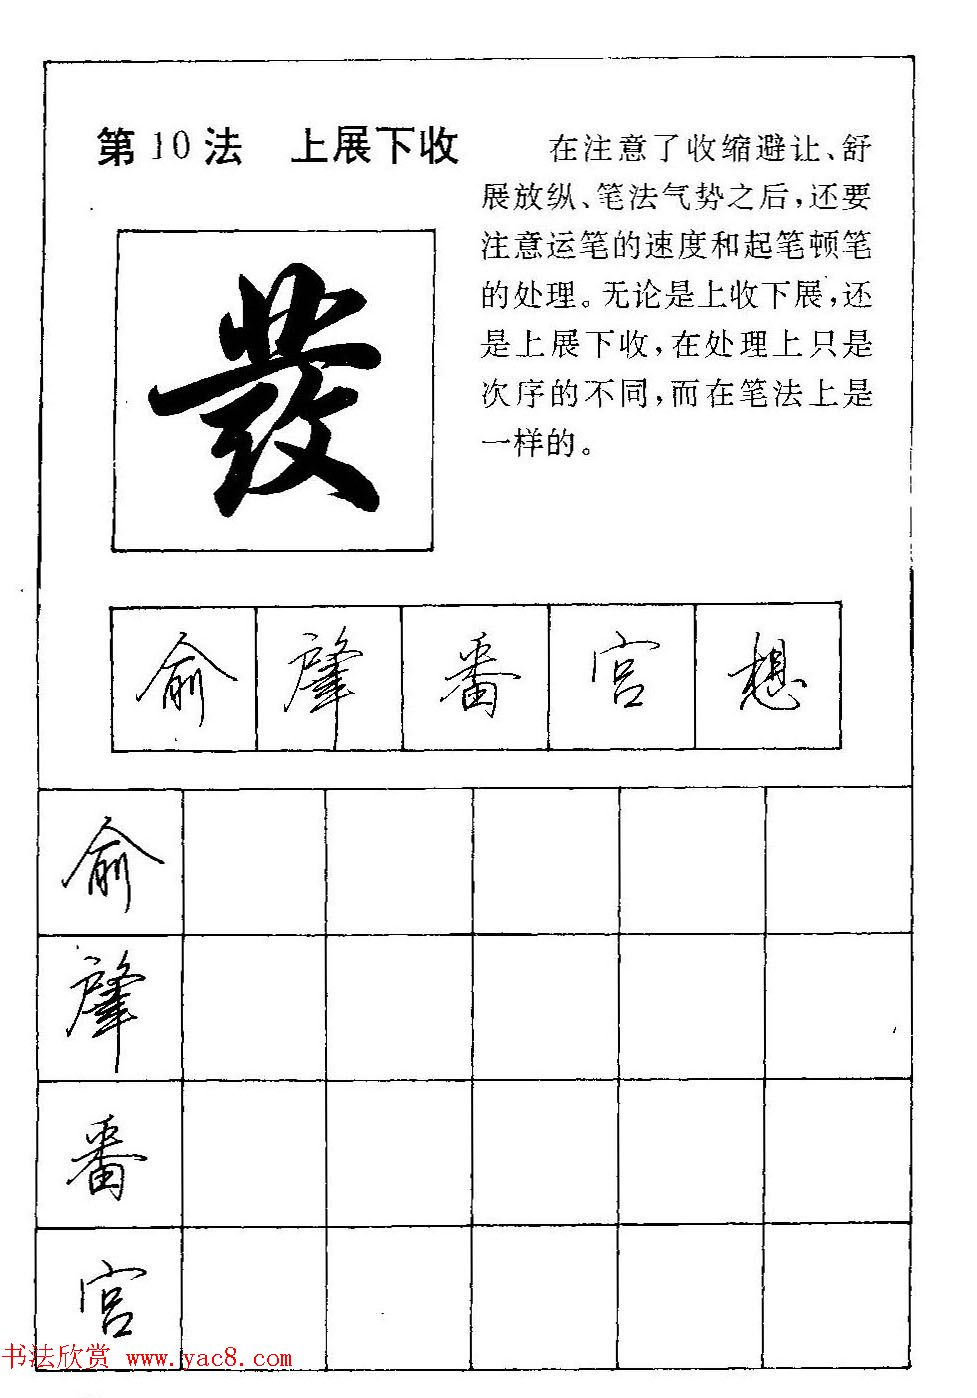 第10法 上展下收
在注意了收缩避让、舒
展放纵、笔法气势之后，还要
注意运笔的速度和起笔顿笔
的处理。无论是上收下展，还
是上展下收，在处理上只是
次序的不同，而在笔法上是
一样的。
發
俞 肇 番 宫 想
俞
肇
番
宫
书法欣赏 www.yac8.com